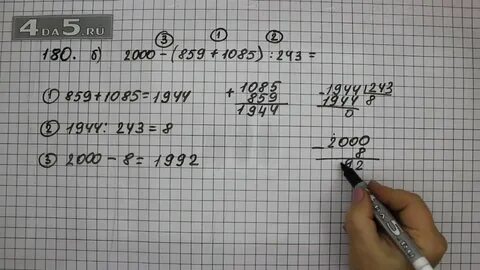 4DA5.RU
③ ① ②
180. б) 2000 - (859 + 1085) : 243 =
① 859 + 1085 = 1944
② 1944 : 243 = 8
③ 2000 - 8 = 1992
+ 1085
859
1944
- 1944 | 243
1944 8
0
- 2000
8
92